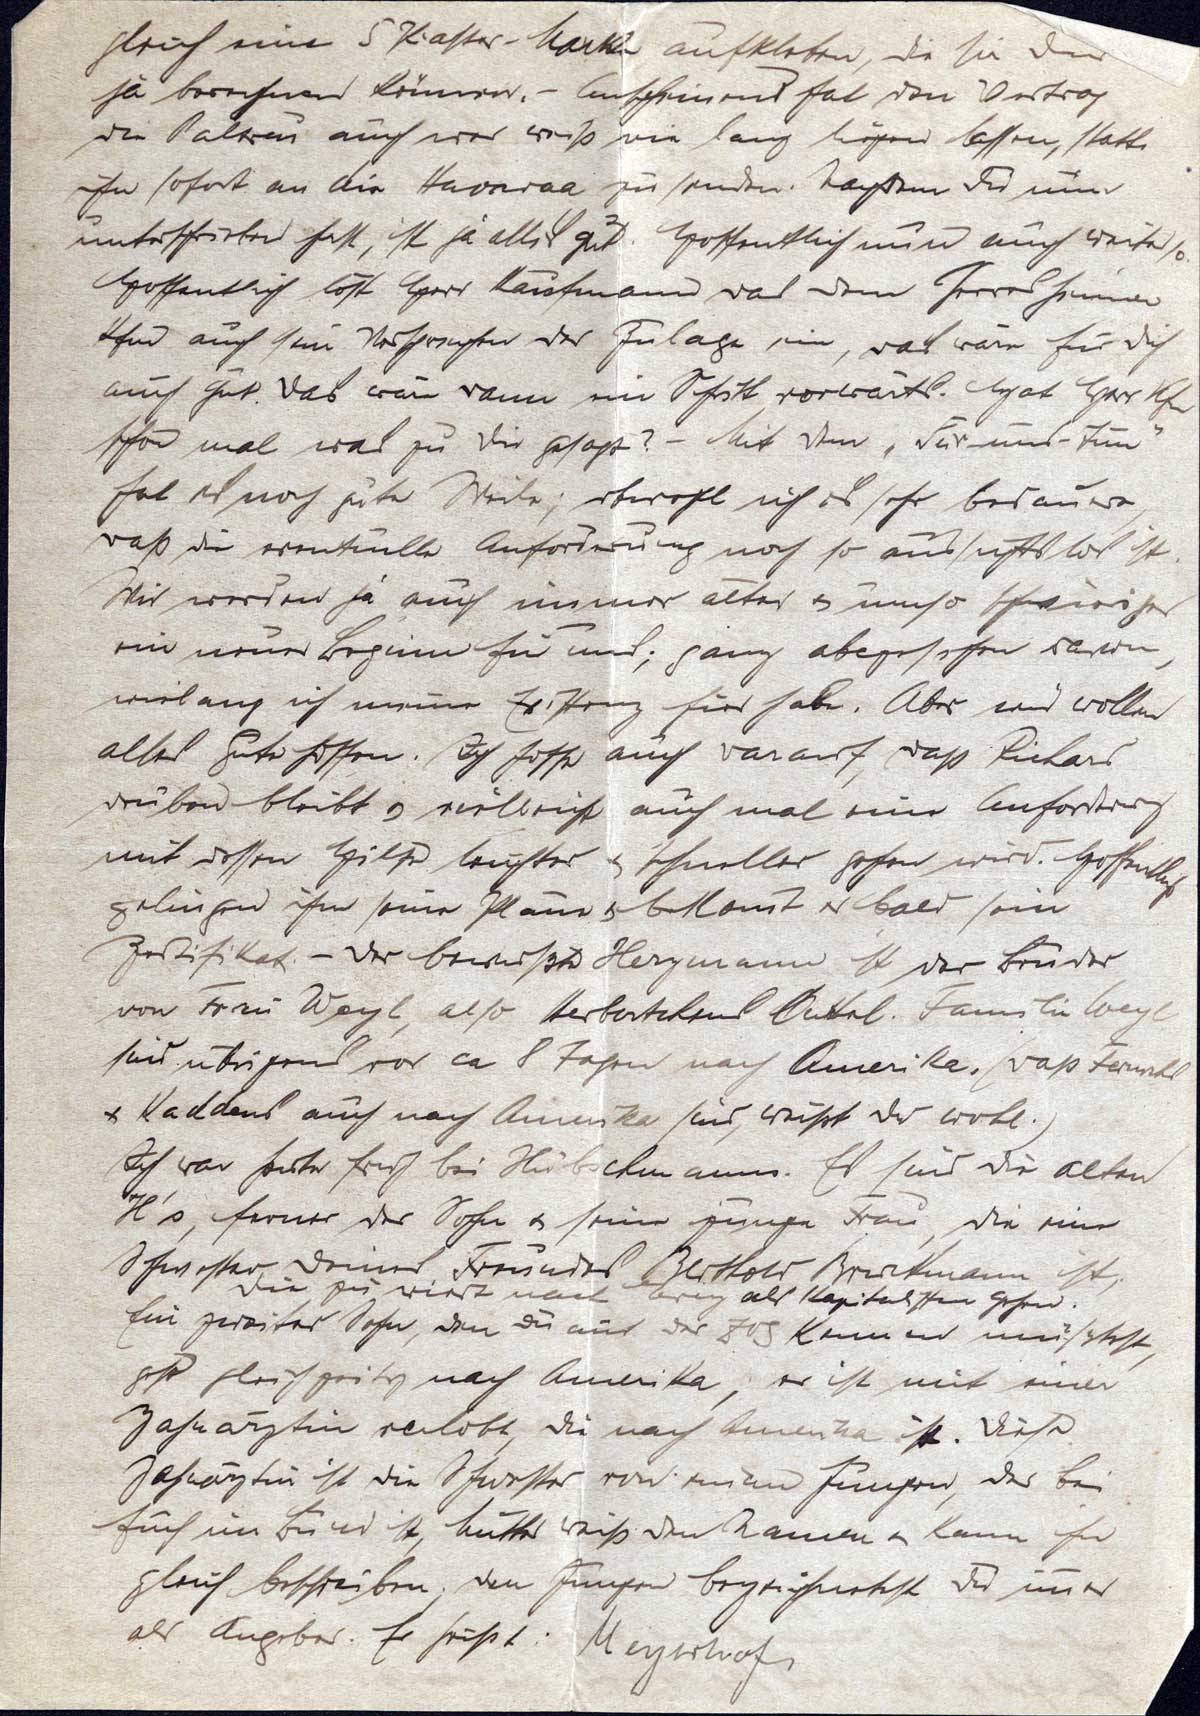 gleich eine 5 Piaster-Marke aufkleben, die sie Dir
ja berechnen können. – Anscheinend hat den Vertrag
die Paltreu auch wer weiß wie lang liegen lassen, statt
ihn sofort an die Haavaraa zu senden. Nachdem Du nun
unterschrieben hast, ist ja alles gut. Hoffentlich nun auch weiter so.
Hoffentlich löst Herr Kaufmann das dem
auch sein Versprechen der Zulage ein, das wäre für Dich
auch gut. Das wäre dann ein Schritt vorwärts. Hat Herr Kfm
schon mal was zu Dir gesagt? – Mit dem „Für-uns-tun"
hat es noch gute Weile; obwohl ich es sehr bedauere,
daß die eventuelle Anforderung noch so aussichtslos ist.
Wir werden ja auch immer älter & umso schwieriger
ein neuer Beginn für uns; ganz abgesehen davon,
wielang ich meine Existenz hier habe. Aber wir wollen
alles Gute hoffen. Ich hoffe auch darauf, daß Richard
drüben bleibt & vielleicht auch mal eine Anforderung
mit dessen Hilfe leichter & schneller gehen wird. Hoffentlich
gelingen ihm seine Pläne & bekommt er bald sein
Zertifikat. – Der bewußte Herzmann ist der Bruder
von Frau Weyl, also Herbertchens Onkel. Familie Weyl
sind übrigens vor ca 8 Tagen nach Amerika. (daß
& Kaddens auch nach Amerika sind, weißt Du wohl.)
Ich war heute früh bei Hübschmanns. Es sind die alten
H's, ferner der Sohn & seine junge Frau, die eine
Schwester Deines Freundes Berthold ist,
die zu viert nach als Kapitalisten gehen.
Ein zweiter Sohn, den Du aus der kennen müßtest,
geht gleichzeitig nach Amerika, er ist mit einer
Zahnärztin verlobt, die nach Amerika ist. Diese
Zahnärztin ist die Schwester von einem Jungen, der bei
Euch im Bund ist, Mutter weiß den Namen & kann ihn
gleich beschreiben, den Jungen bezeichnetest Du immer
als Angeber. Er heißt: Meyerhof,